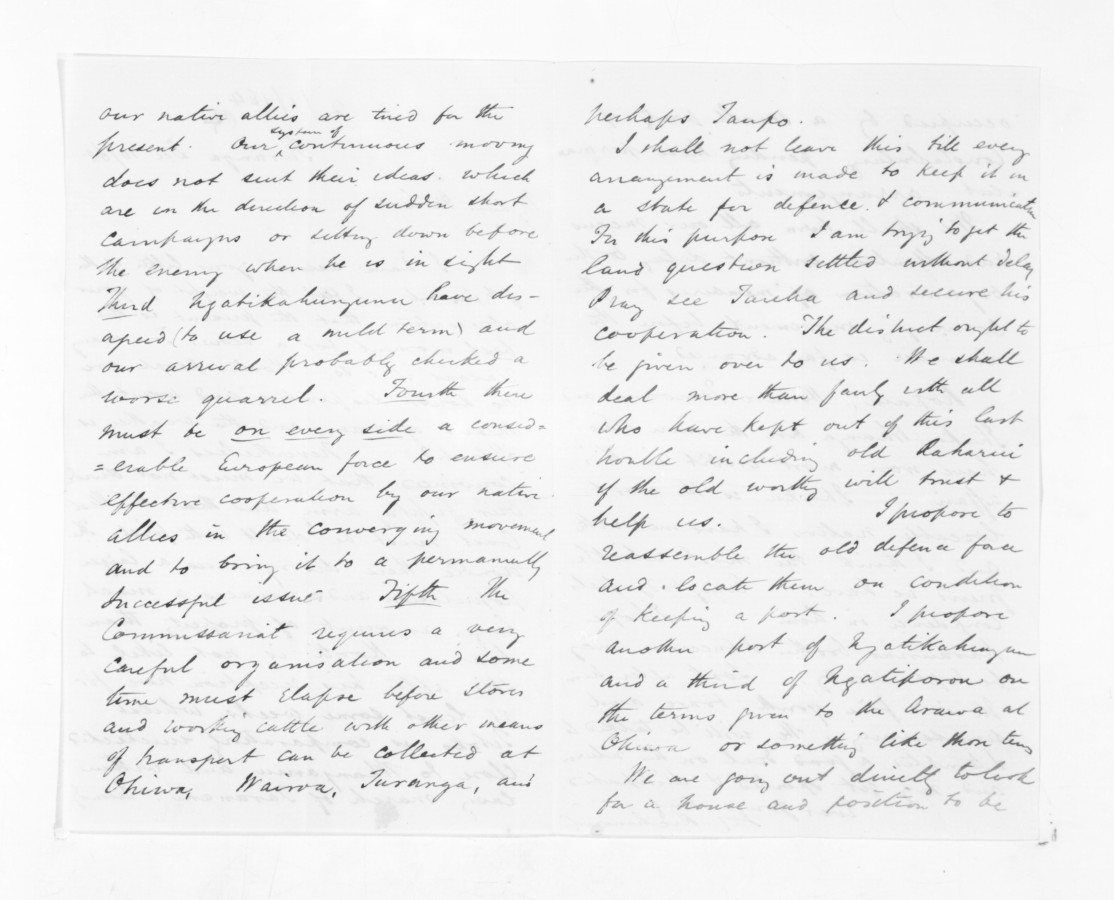 our native allies are tired for the
present. Our system of continuous moving
does not suit their ideas which
are in the direction of sudden short
campaigns or sitting down before
the enemy when he is in sight
Third Ngatikahungunu have dis-
agreed (to use a mild term) and
our arrival probably checked a
worse quarrel. Fourth there
must be on every side a consid=
=erable European force to ensure
effective cooperation by our native
allies in the converging movement
and to bring it to a permanently
successful issue Fifth The
Commissariat requires a very
careful organisation and some
time must elapse before stores
and working cattle with other means
of transport can be collected at
Ohiwa, Wairoa, Turanga, and
perhaps Taupo.
I shall not leave this till every
arrangement is made to keep it in
a state for defence & communication
For this purpose I am trying to get the
land question settled without delay
Pray see Tareha and secure his
cooperation. The district ought to
be given over to us. We shall
deal more than fairly with all
who have kept out of this last
trouble including old Raharui
if the old worthy will trust &
help us. I propose to
reassemble the old defence force
and locate them on condition
of keeping a post. I propose
another post of Ngatikahungunu
and a third of Ngatiporou on
the terms given to the Arawa at
Ohiwa or something like those terms
We are going out directly to look
for a house and position to be